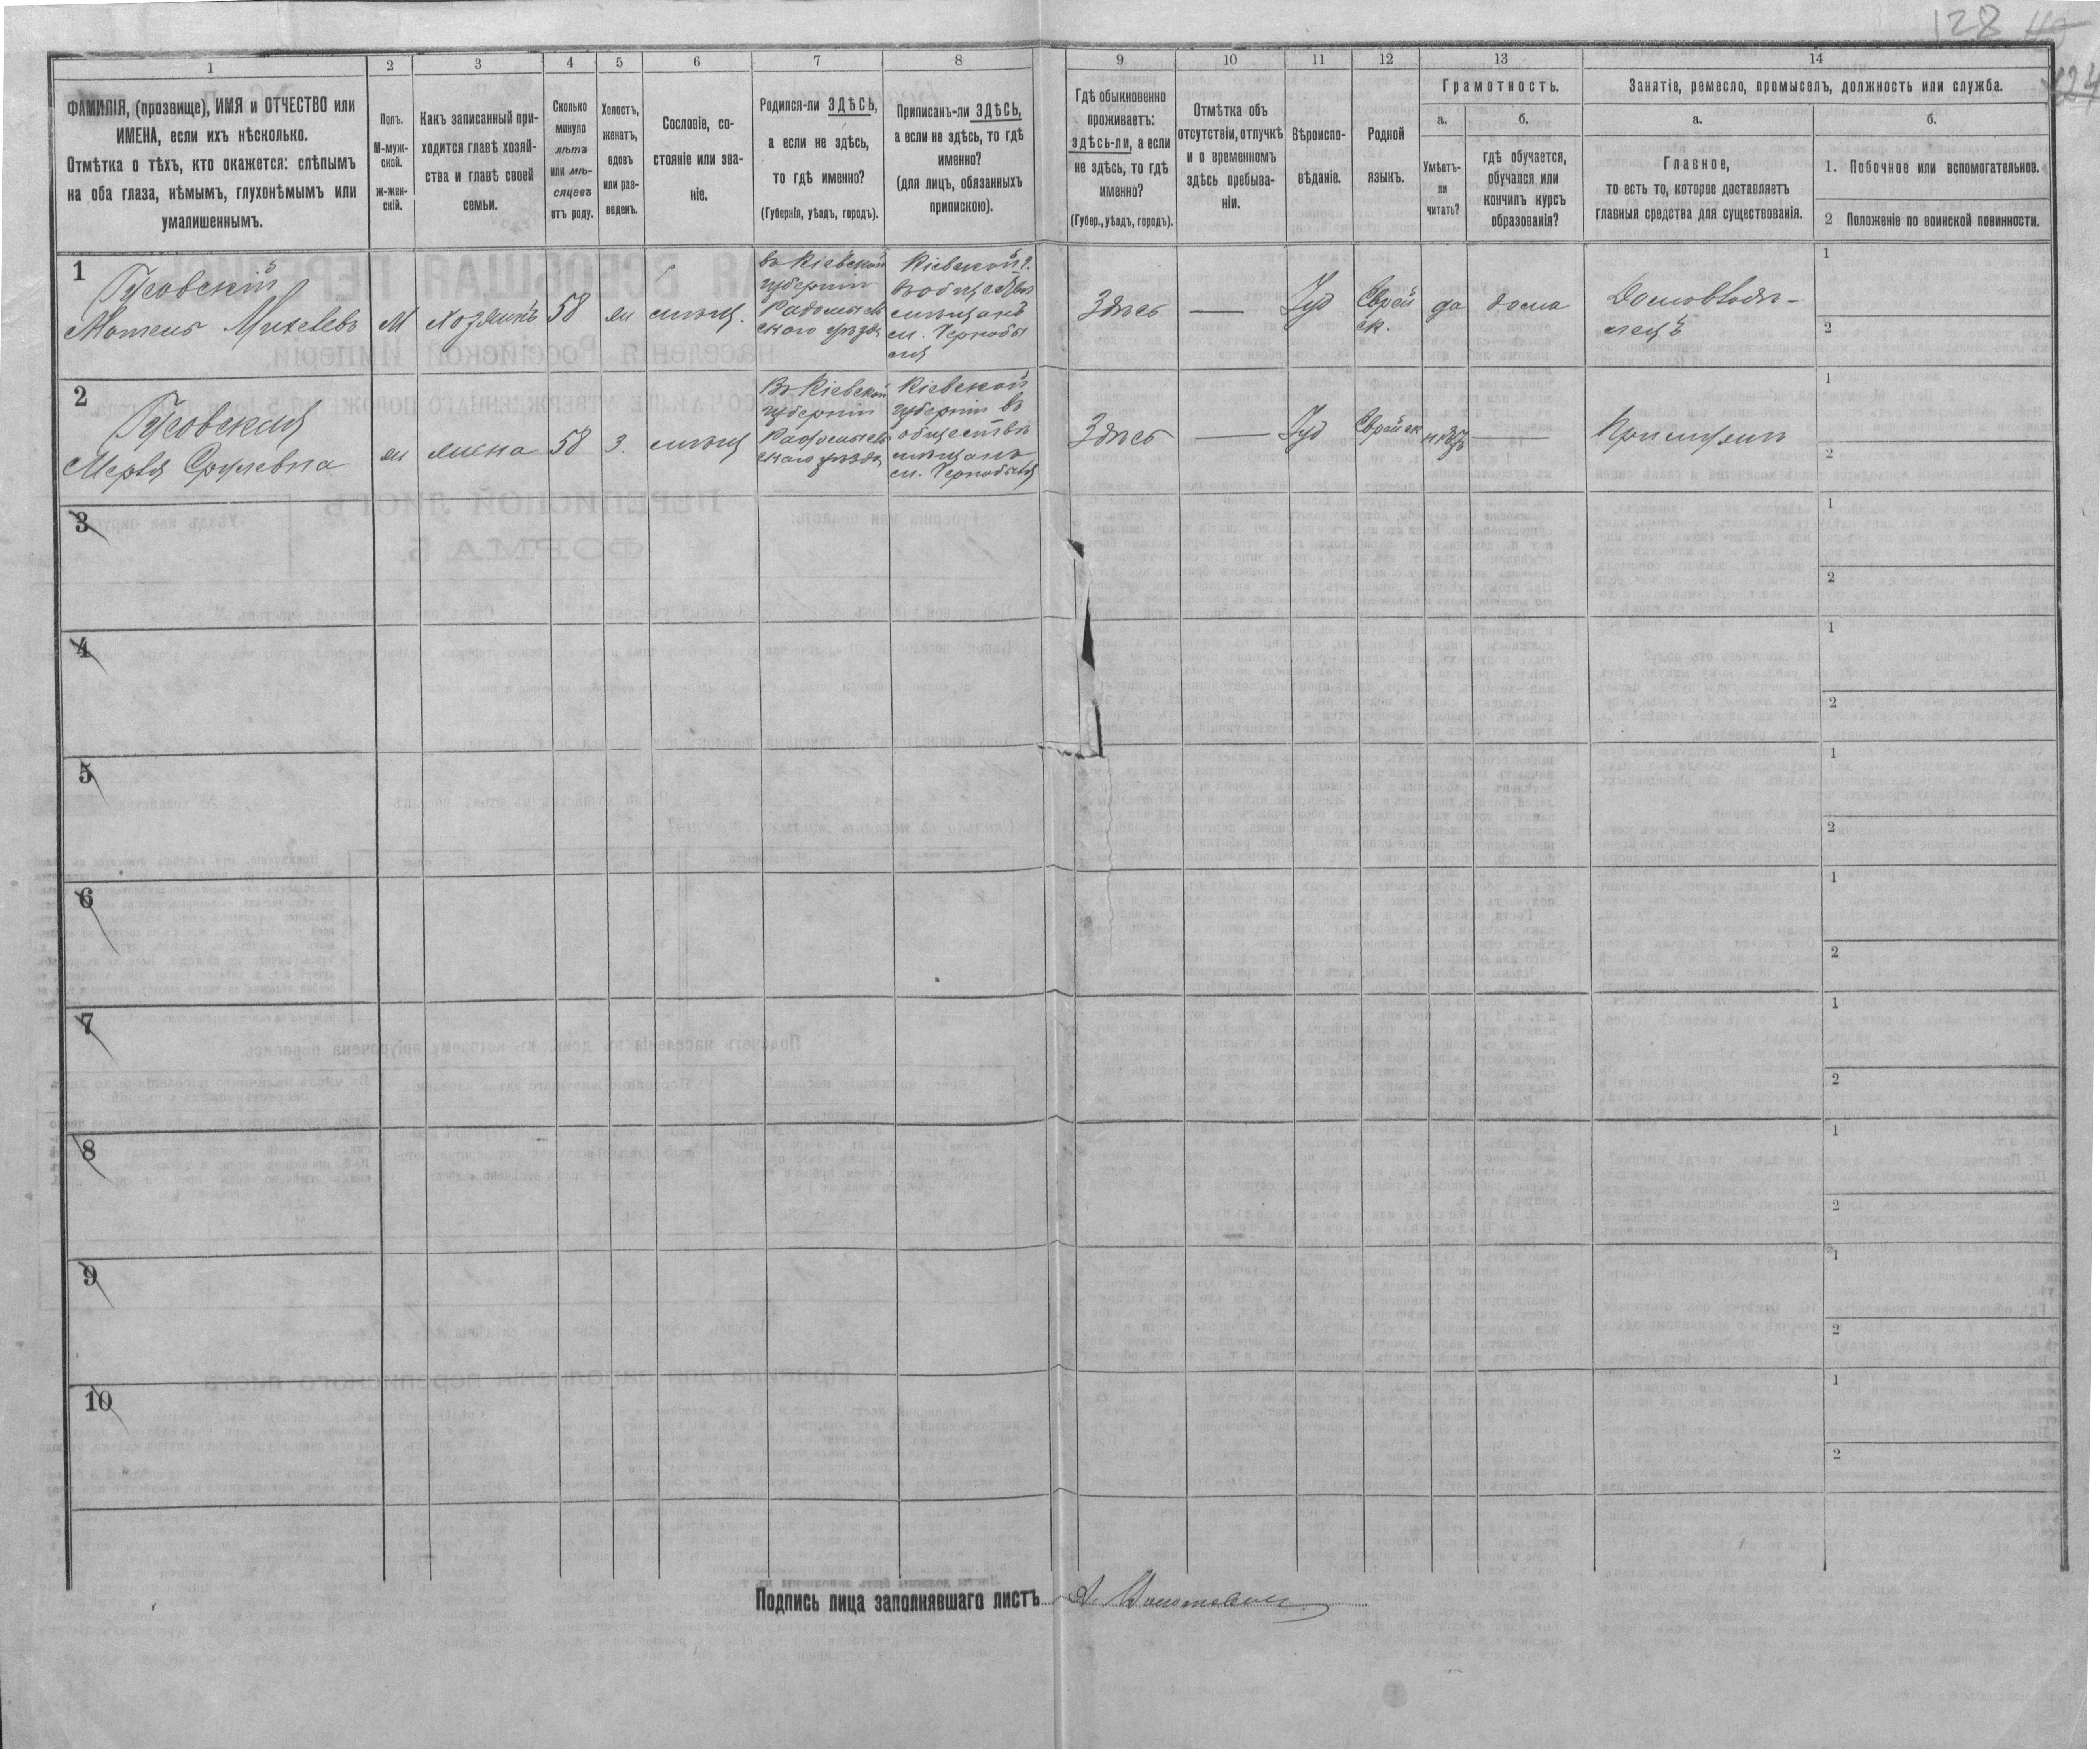 128
1
2
3
4
5
6
7
8
9
10
11
12
13
14
ФАМИЛІЯ, (прозвище), ИМЯ и ОТЧЕСТВО или
ИМЕНА, если ихъ нѣсколько.
Отмѣтка о тѣхъ, кто окажется: слѣпымъ
на оба глаза, нѣмымъ, глухонѣмымъ или
умалишеннымъ.
Полъ.
М-муж-
ской.
ж-жен-
скій.
Какъ записанный при-
ходится главѣ хозяй-
ства и главѣ своей
семьи.
Сколько
минуло
лѣтъ
или мѣ-
сяцевъ
отъ роду.
Холостъ,
женатъ,
вдовъ
или раз-
веденъ.
Сословіе, со-
стояніе или зва-
ніе.
Родился-ли ЗДѢСЬ,
а если не здѣсь,
то гдѣ именно?
(Губернія, уѣздъ, городъ).
Приписанъ-ли ЗДѢСЬ,
а если не здѣсь, то гдѣ
именно?
(для лицъ, обязанныхъ
припискою).
Гдѣ обыкновенно
проживаетъ:
здѣсь-ли, а если
не здѣсь, то гдѣ
именно?
(Губер., уѣздъ, городъ).
Отмѣтка объ
отсутствіи, отлучкѣ
и о временномъ
здѣсь пребыва-
ніи.
Вѣроиспо-
вѣданіе.
Родной
языкъ.
Грамотность.
а.
Умѣетъ-
ли
читать?
б.
гдѣ обучается,
обучался или
кончилъ курсъ
образованія?
Занятіе, ремесло, промыселъ, должность или служба.
а.
Главное,
то есть то, которое доставляетъ
главныя средства для существованія.
б.
1. Побочное или вспомогательное.
2 Положеніе по воинской повинности.
1
Гусовскій
Мотель Михелевъ
М
хозяинъ
58
ж
мѣщ.
въ Кіевской
губерніи
Радомысль
скаго уѣзда
Кіевской г.
въ обществѣ
мѣщанъ
м. Чернобы
ля
Здѣсь
—
Іуд
Еврей
ск.
да
дома
Домовладѣ-
лецъ
1
2
2
Гусовская
Мерья Срулевна
ж
жена
58
з.
мѣщ
Въ Кіевской
губерніи
Радомысль
скаго уѣзда
Кіевской
губерніи въ
обществѣ
мѣщанъ
м. Чернобыля
Здѣсь
—
Іуд
Еврейск
нѣтъ
—
При мужѣ
1
2
3
1
2
4
1
2
5
1
2
6
1
2
7
1
2
8
1
2
9
1
2
10
1
2
Подпись лица заполнявшаго листъ